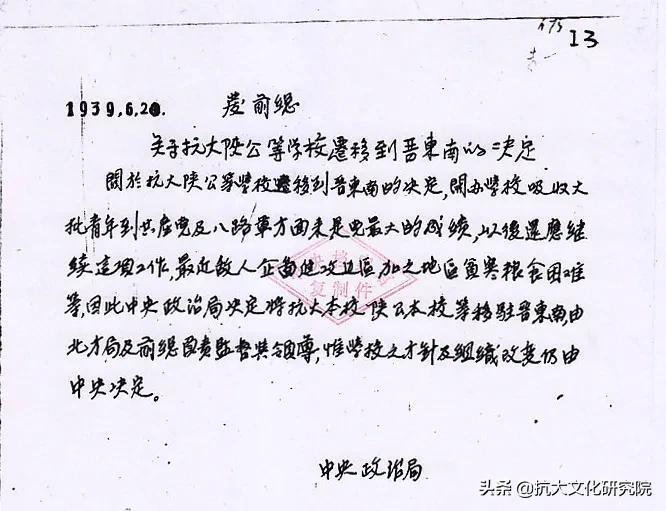 13
1939.6.20.
发前總
关于抗大陕公等学校遷移到晋東南的決定
関於抗大陕公等學校遷移到晋東南的决定,開办學校吸收大
批青年到共产党及八路軍方面来是党最大的成績,以後還應继
续這項工作,最近敌人企畜進攻边區,加之地區貧寒粮食困难
等,因此中央政治局决定将抗大本校陕公本校等移駐晋東南,由
北方局及前總負責監督與領導,惟學校之方針及组織改变仍由
中央决定。
中央政治局
复制件
头条 @抗大文化研究院